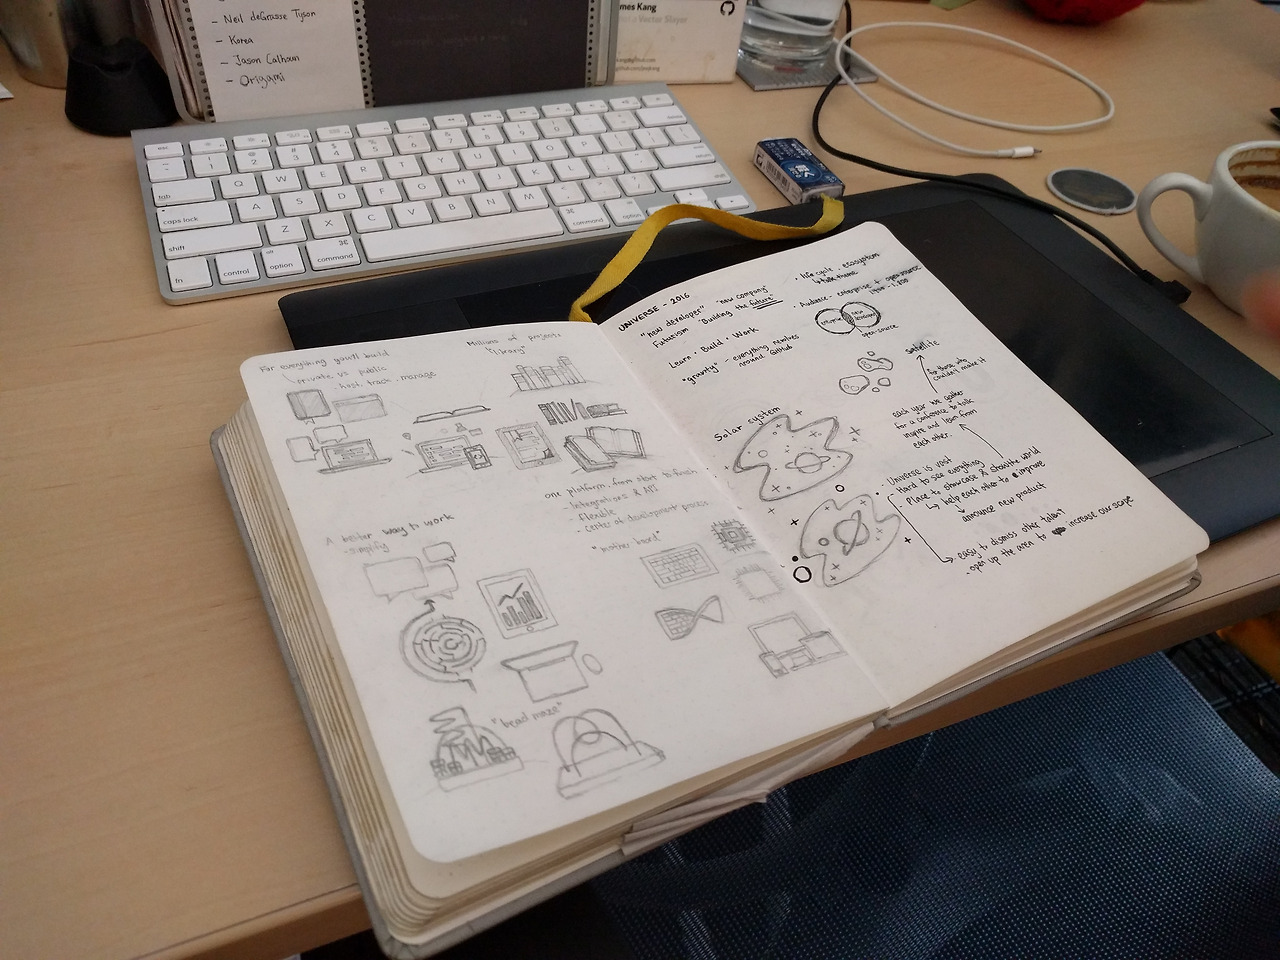 - Neil deGrasse Tyson
- Korea
- Jason Calhoun
- Origami
mes Kang
Vector Slayer
esc
tab
caps lock
shift
fn
control
option
command
command
option
Q W E R T Y U I O P
A S D F G H J K L
Z X C V B N M
For everything you'll build
private vs public
host, track, manage
Millions of projects
"library"
one platform, from start to finish
- Integrations & API
- flexible
- center of development process
A better way to work
- simplify
"mother board"
"bead maze"
UNIVERSE - 2016
"new developer" "new company"
Futurism "Building the future"
Learn · Build · Work
"gravity" - everything revolves
around GitHub
· life cycle, ecosystem
↳ talk theme
· Audience - enterprise + open source
enterprise
new developer
open source
satellite
to those who
couldn't make it
Solar system
each year we gather
for a conference to talk
inspire and learn from
each other.
· Universe is vast
- Hard to see everything
- Place to showcase & show the world
↳ help each other to improve
↳ announce new product
- easy to dismiss other talent
· open up the area to increase our scope